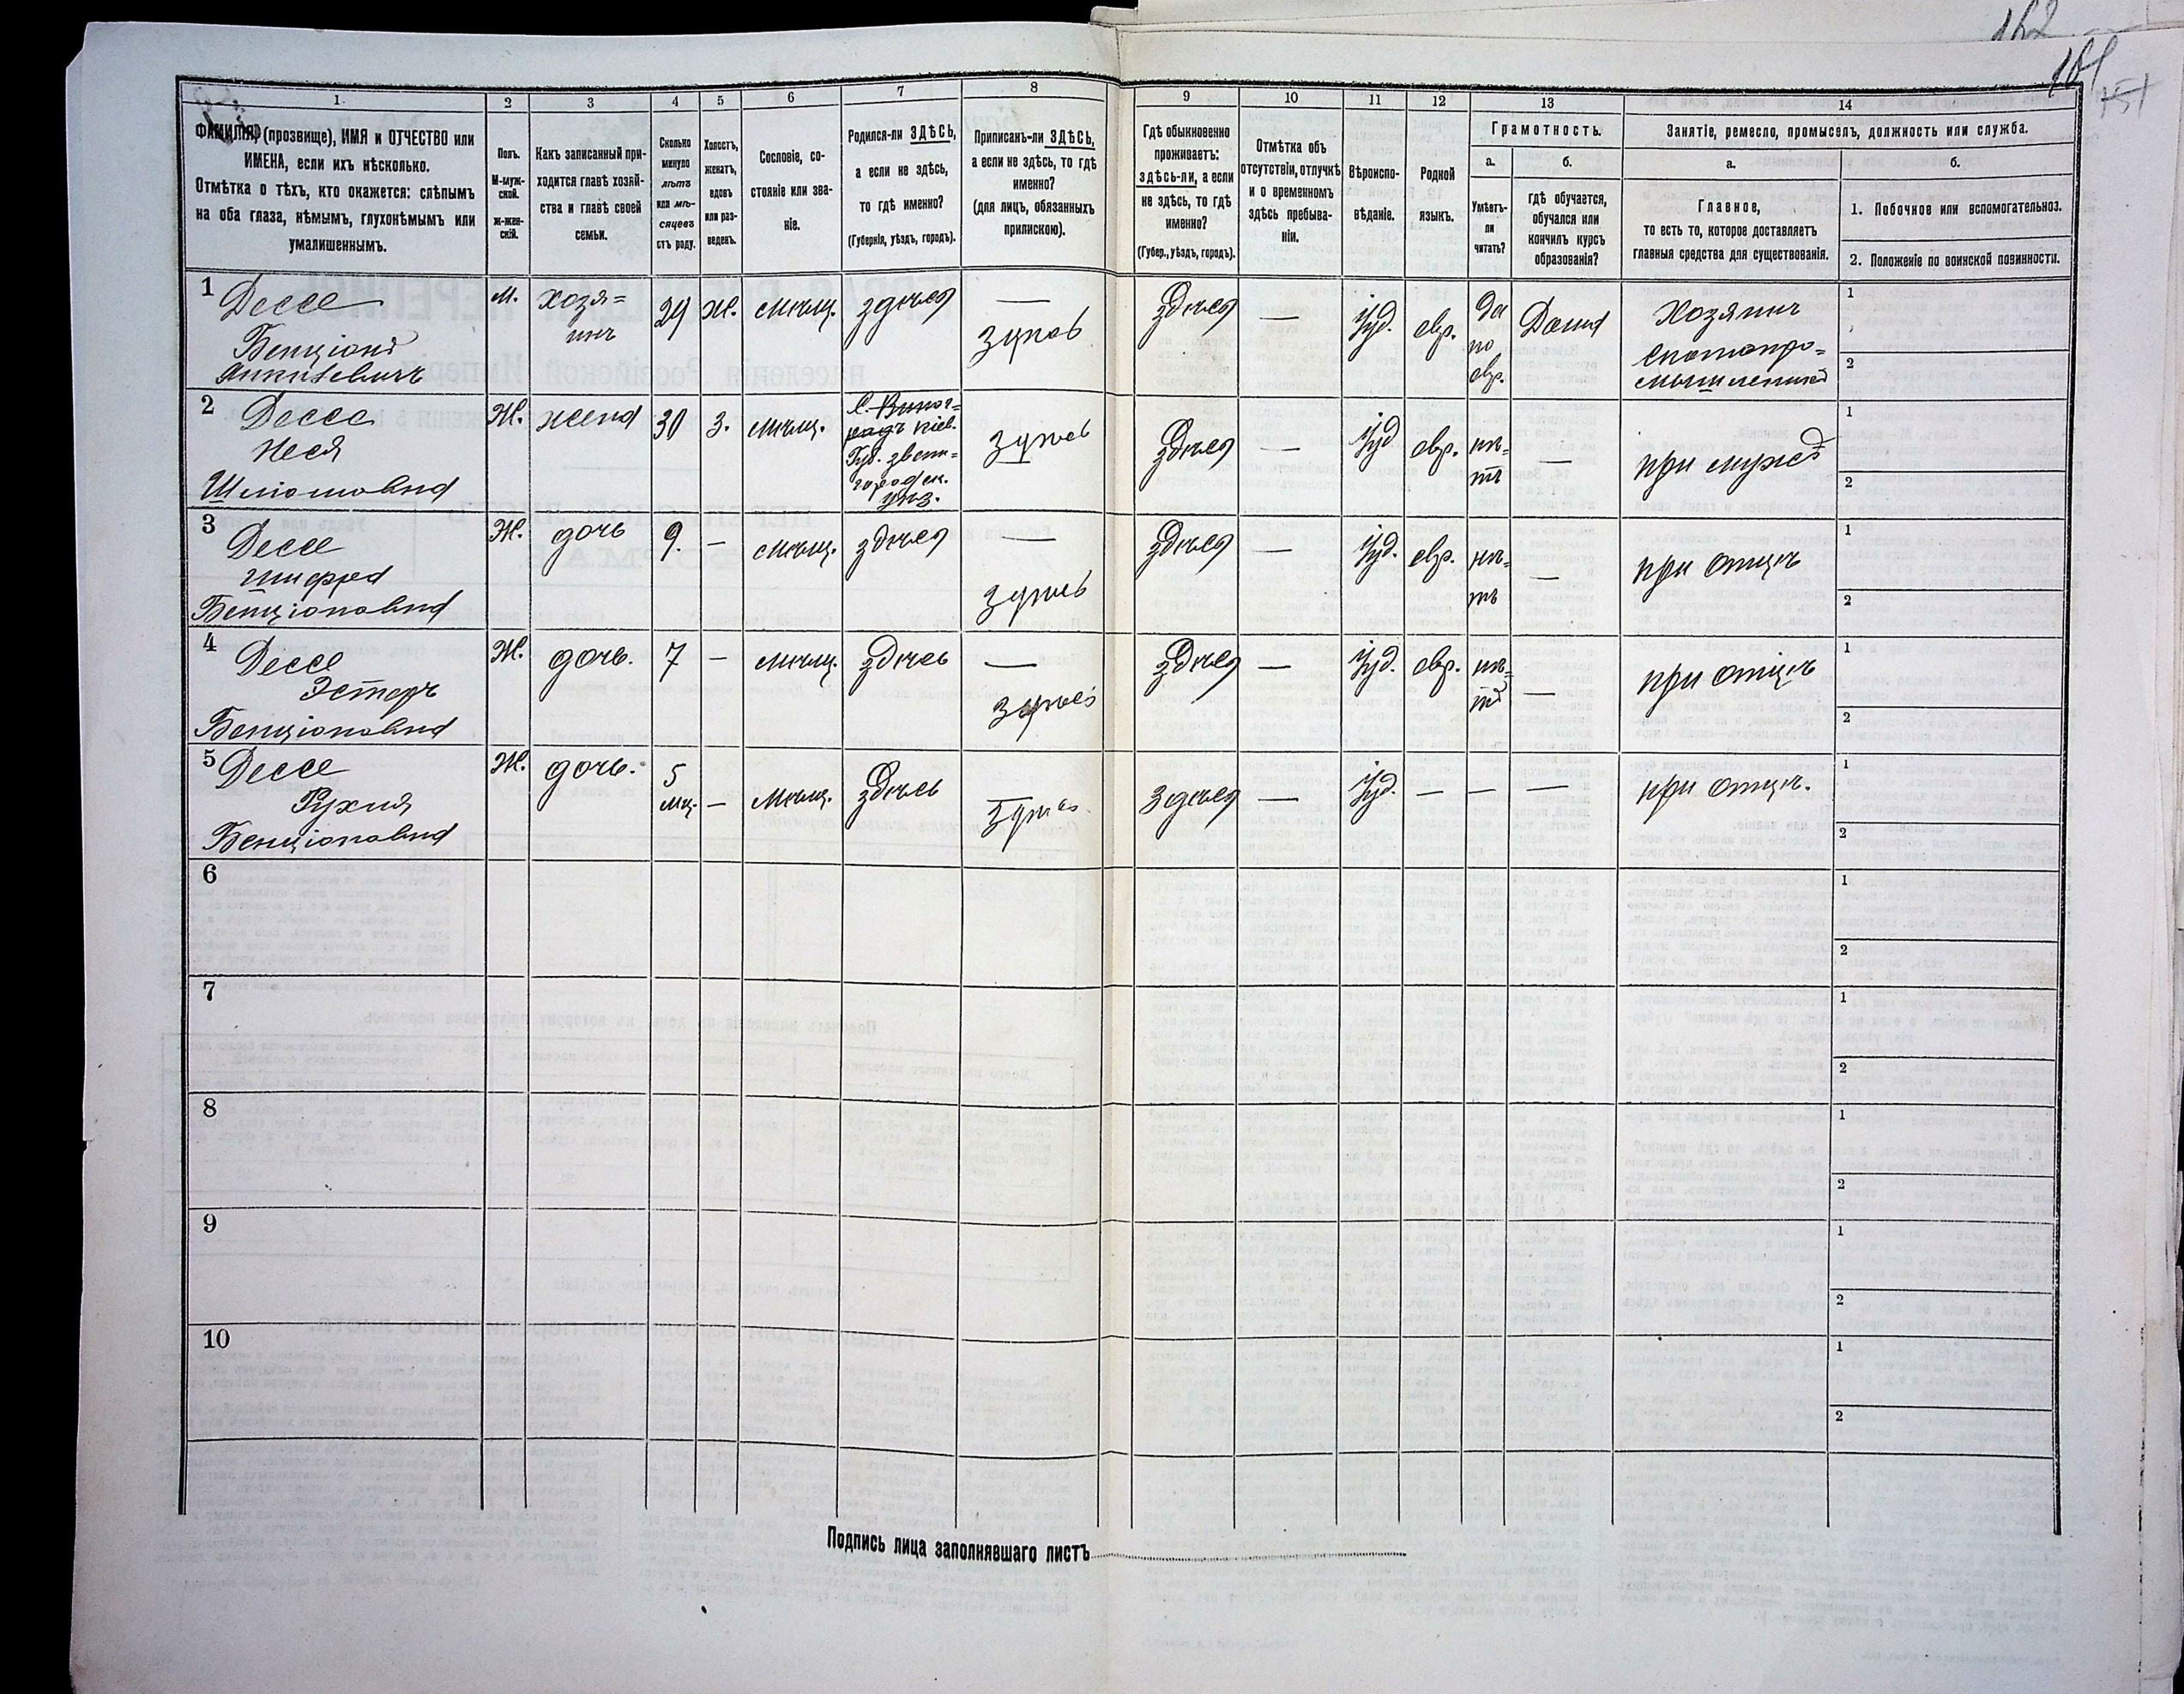 162
161
151
1
2
3
4
5
6
7
8
9
10
11
12
13
14
ФАМИЛІЯ, (прозвище), ИМЯ и ОТЧЕСТВО или
ИМЕНА, если ихъ нѣсколько.
Отмѣтка о тѣхъ, кто окажется: слѣпымъ
на оба глаза, нѣмымъ, глухонѣмымъ или
умалишеннымъ.
Полъ.
М-муж-
ской.
ж-жен-
скій.
Какъ записанный при-
ходится главѣ хозяй-
ства и главѣ своей
семьи.
Сколько
минуло
лѣтъ
или мѣ-
сяцевъ
отъ роду.
Холостъ,
женатъ,
вдовъ
или раз-
веденъ.
Сословіе, со-
стояніе или зва-
ніе.
Родился-ли ЗДѢСЬ,
а если не здѣсь,
то гдѣ именно?
(Губернія, уѣздъ, городъ).
Приписанъ-ли ЗДѢСЬ,
а если не здѣсь, то гдѣ
именно?
(для лицъ, обязанныхъ
припискою).
Гдѣ обыкновенно
проживаетъ:
здѣсь-ли, а если
не здѣсь, то гдѣ
именно?
(Губер., уѣздъ, городъ).
Отмѣтка объ
отсутствіи, отлучкѣ
и о временномъ
здѣсь пребыва-
ніи.
Вѣроиспо-
вѣданіе.
Родной
языкъ.
Грамотность.
а.
б.
Умѣетъ-
ли
читать?
гдѣ обучается,
обучался или
кончилъ курсъ
образованія?
Занятіе, ремесло, промыселъ, должность или служба.
а.
б.
Главное,
то есть то, которое доставляетъ
главныя средства для существованія.
1. Побочное или вспомогательноз.
2. Положеніе по воинской повинности.
1
Дессе
Бенціонъ
м.
хозя=
инъ
29
ж.
мѣщ.
здѣся
—
здѣсь
здѣся
—
іуд.
евр.
да
по
евр.
Дома
Хозяинъ
скотопро=
мышленикъ
1
2
2
Десса
Неся
Шліомовна
Ж.
жена
30
з.
мѣщ.
с. Виног=
радъ кіев.
Губ. звени=
городск.
уѣз.
здѣсь
здѣся
—
іуд
евр.
нѣ=
тъ
—
при мужѣ
1
2
3
Дессе
Шифра
Бенціоновна
Ж.
дочь
9.
—
мѣщ.
здѣся
—
здѣсь
здѣся
—
іуд.
евр.
нѣ=
тъ
—
при отцѣ
1
2
4
Дессе
Эстеръ
Бенціоновна
Ж.
дочь.
7
—
мѣщ.
здѣсь
—
здѣсь
здѣся
—
іуд.
евр.
нѣ=
тъ
—
при отцѣ
1
2
5
Дессе
Рухля
Бенціоновна
Ж.
дочь.
5
мц.
—
мѣщ.
здѣсь
—
здѣсь
здѣся
—
іуд.
—
—
—
при отцѣ.
1
2
6
1
2
7
1
2
8
1
2
9
1
2
10
1
2
Подпись лица заполнявшаго листъ